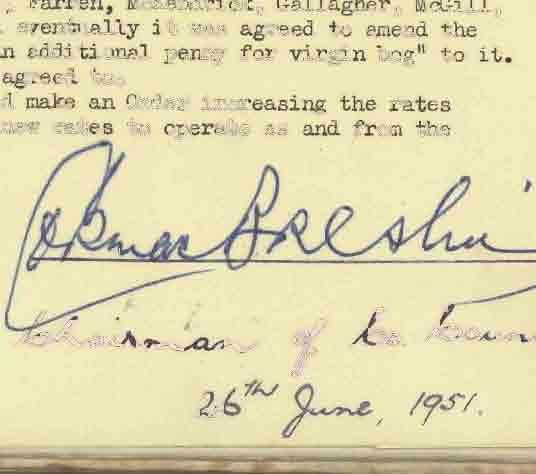 Farren, McKendrick, Gallagher, McGill,
eventually it was agreed to amend the
an additional penny for virgin bog" to it.
agreed to.
d make an Order increasing the rates
new rates to operate as and from the
Cormac Breslin
Chairman of Co. Coun
26TH June, 1951.